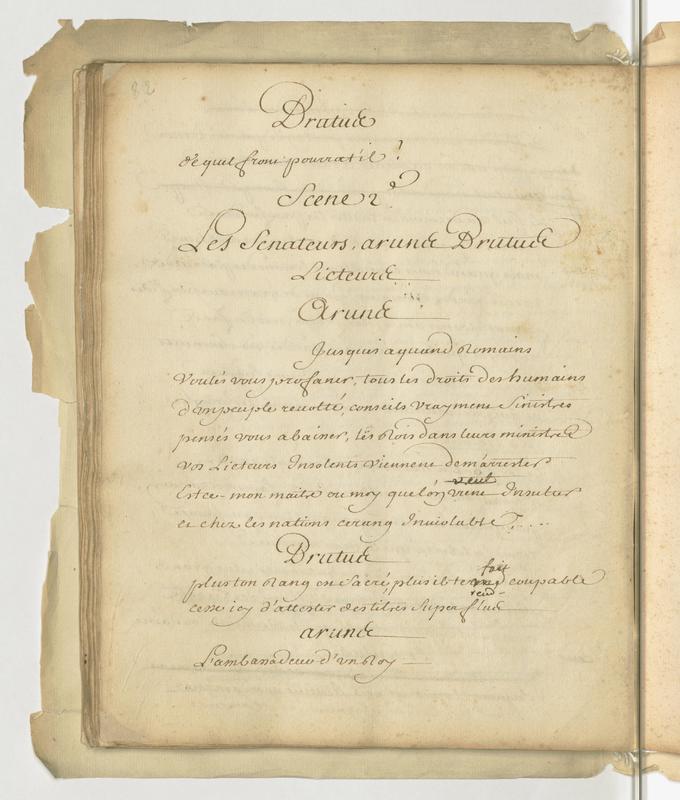 82
Brutus
de quel front pourratil?
Scene 2e
Les Senateurs, arunds Brutus
Licteurs
Aruns
Jusquis a quand Romains
Voulés vous profaner, tous les droits des humains
d'un peuple revolté, conseils vrayment Sinistres
pensés vous abaisser, les Rois dans leurs ministres
vos Licteurs Insolents viennent demarrester
veut
Est ce mon maitre ou moy que lon vient Insulter
et chez les nations ce rang Inviolable ?....
Brutus
fait
plus ton Rang est Sacré, plus il te rend coupable
rend
cesse icy d'attester des titres Superflus
aruns
L'ambassadeur d'un Roy